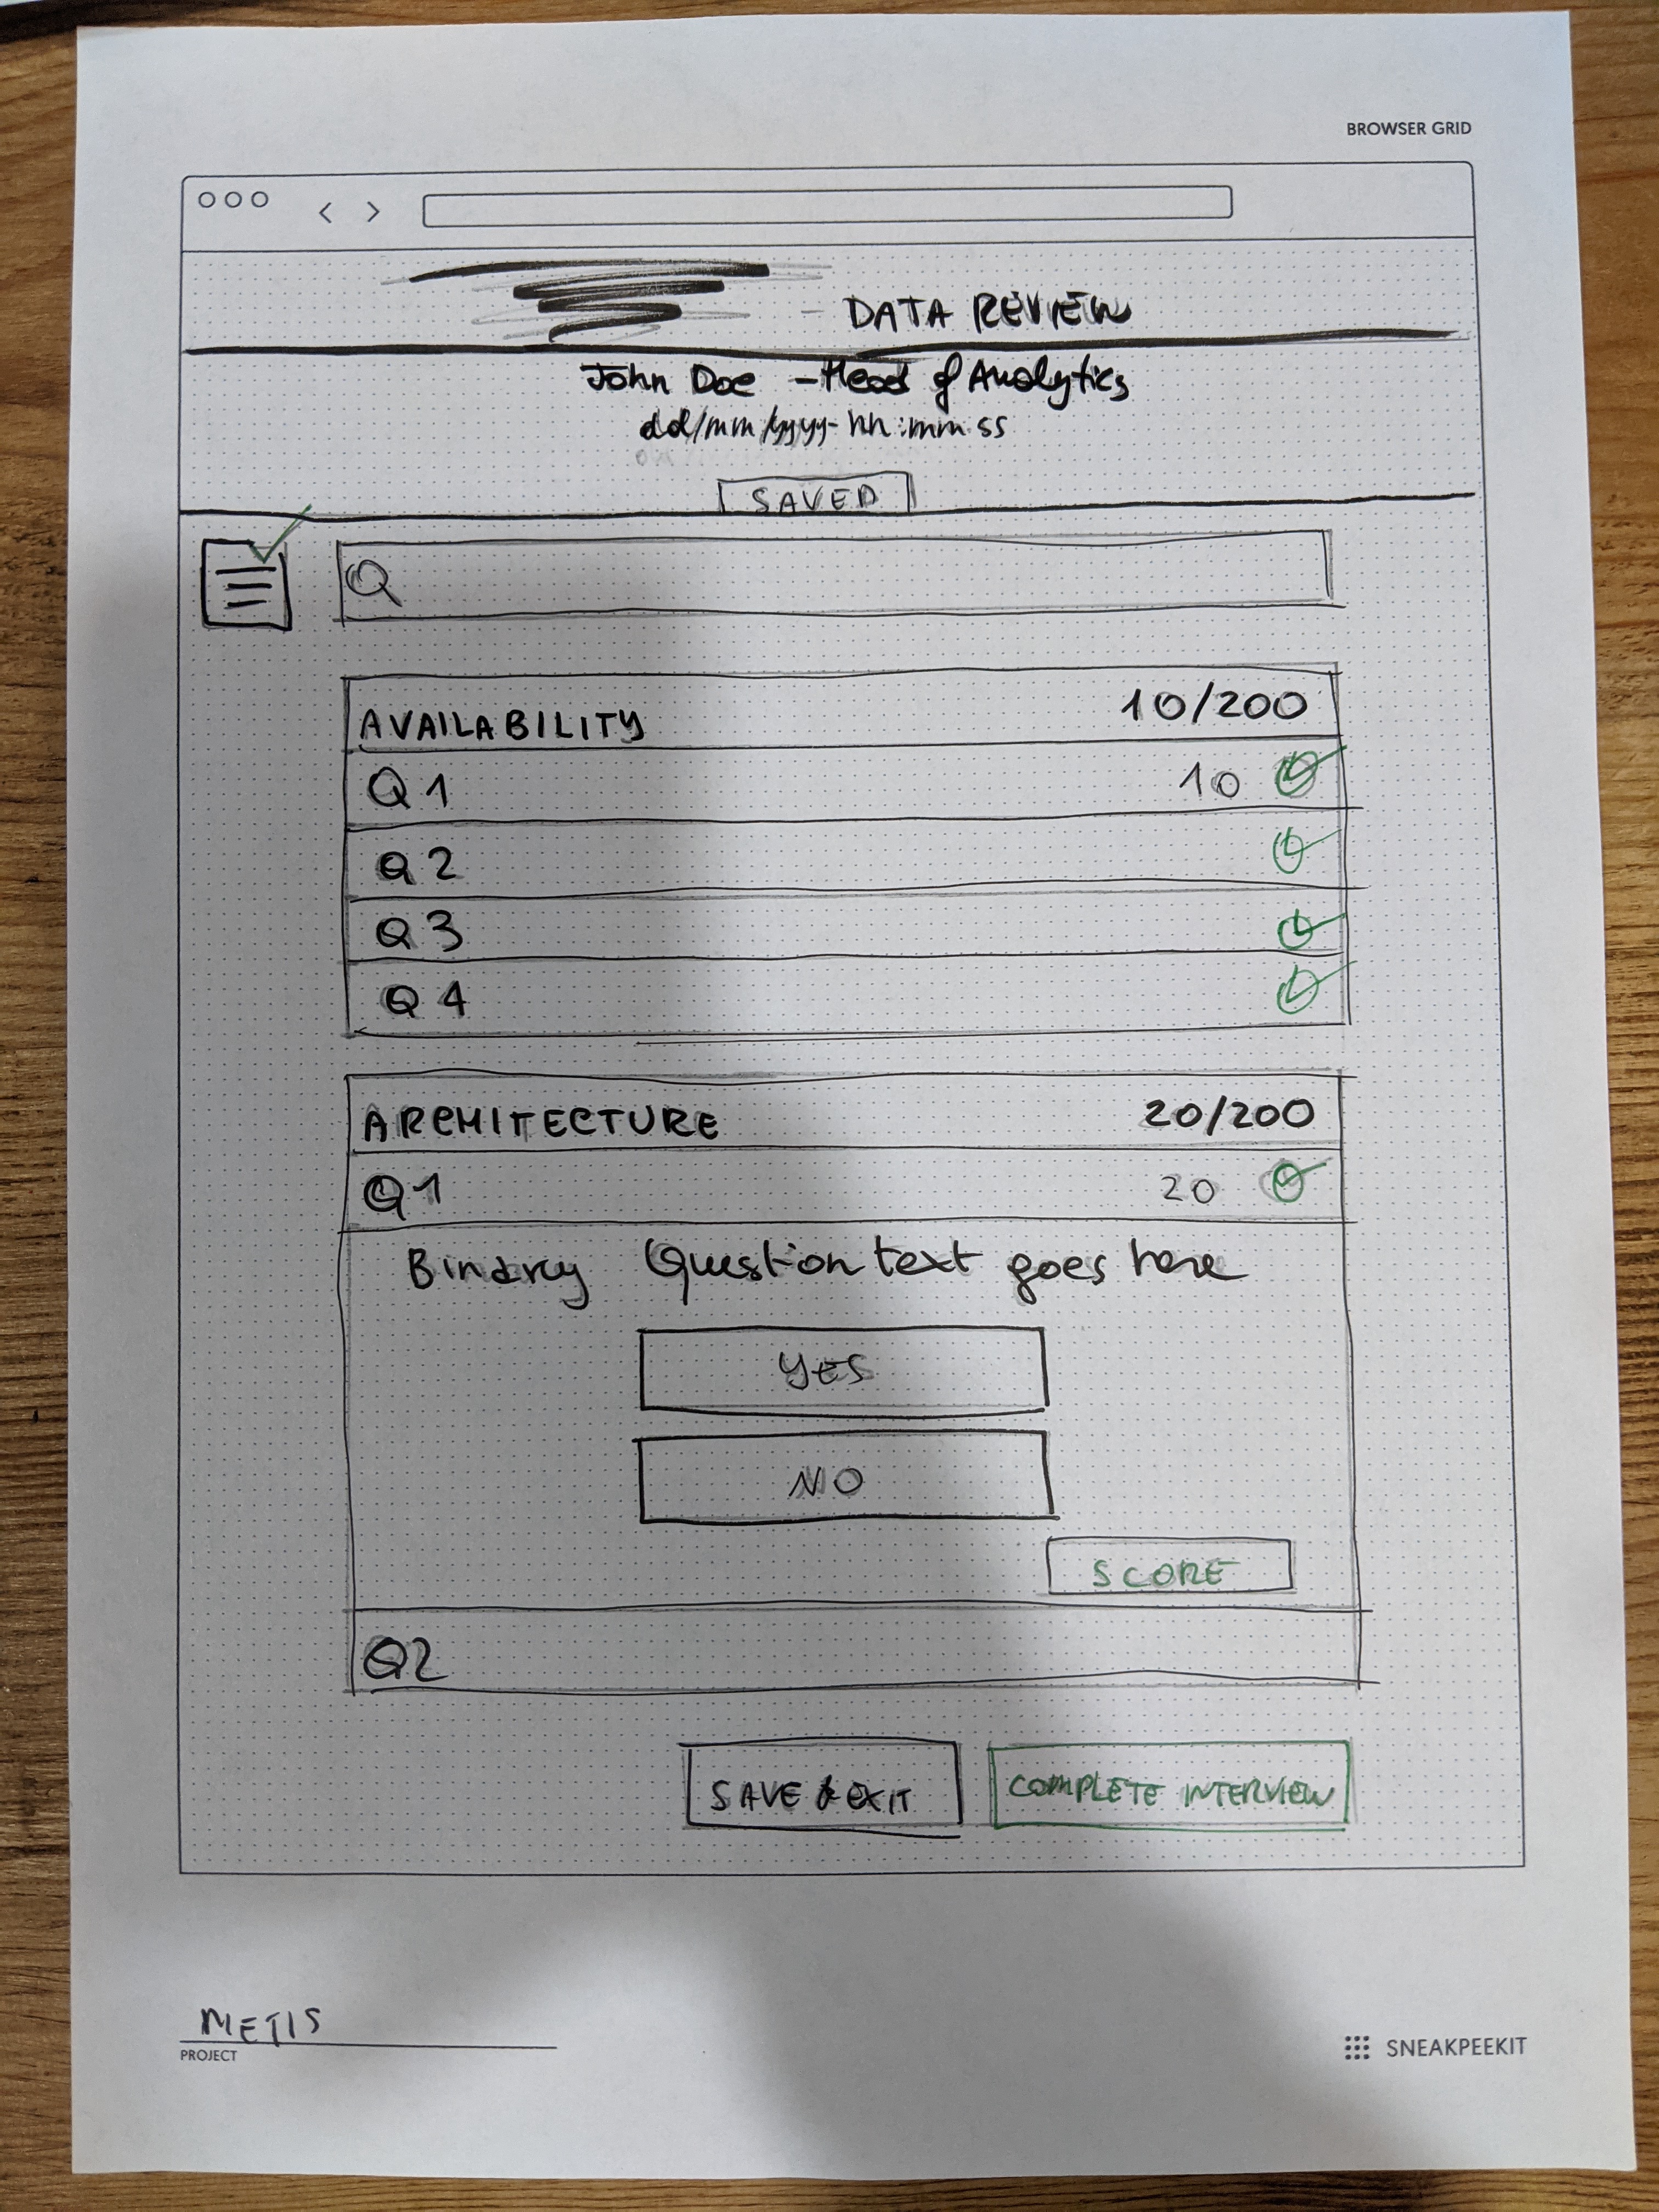 BROWSER GRID
- DATA REVIEW
John Doe - Head of Analytics
dd/mm/yyyy - hh:mm:ss
SAVED
AVAILABILITY 10/200
Q1 10
Q2
Q3
Q4
ARCHITECTURE 20/200
Q1 20
Binary Question text goes here
YES
NO
SCORE
Q2
SAVE & EXIT COMPLETE INTERVIEW
METIS
PROJECT
SNEAKPEEKIT